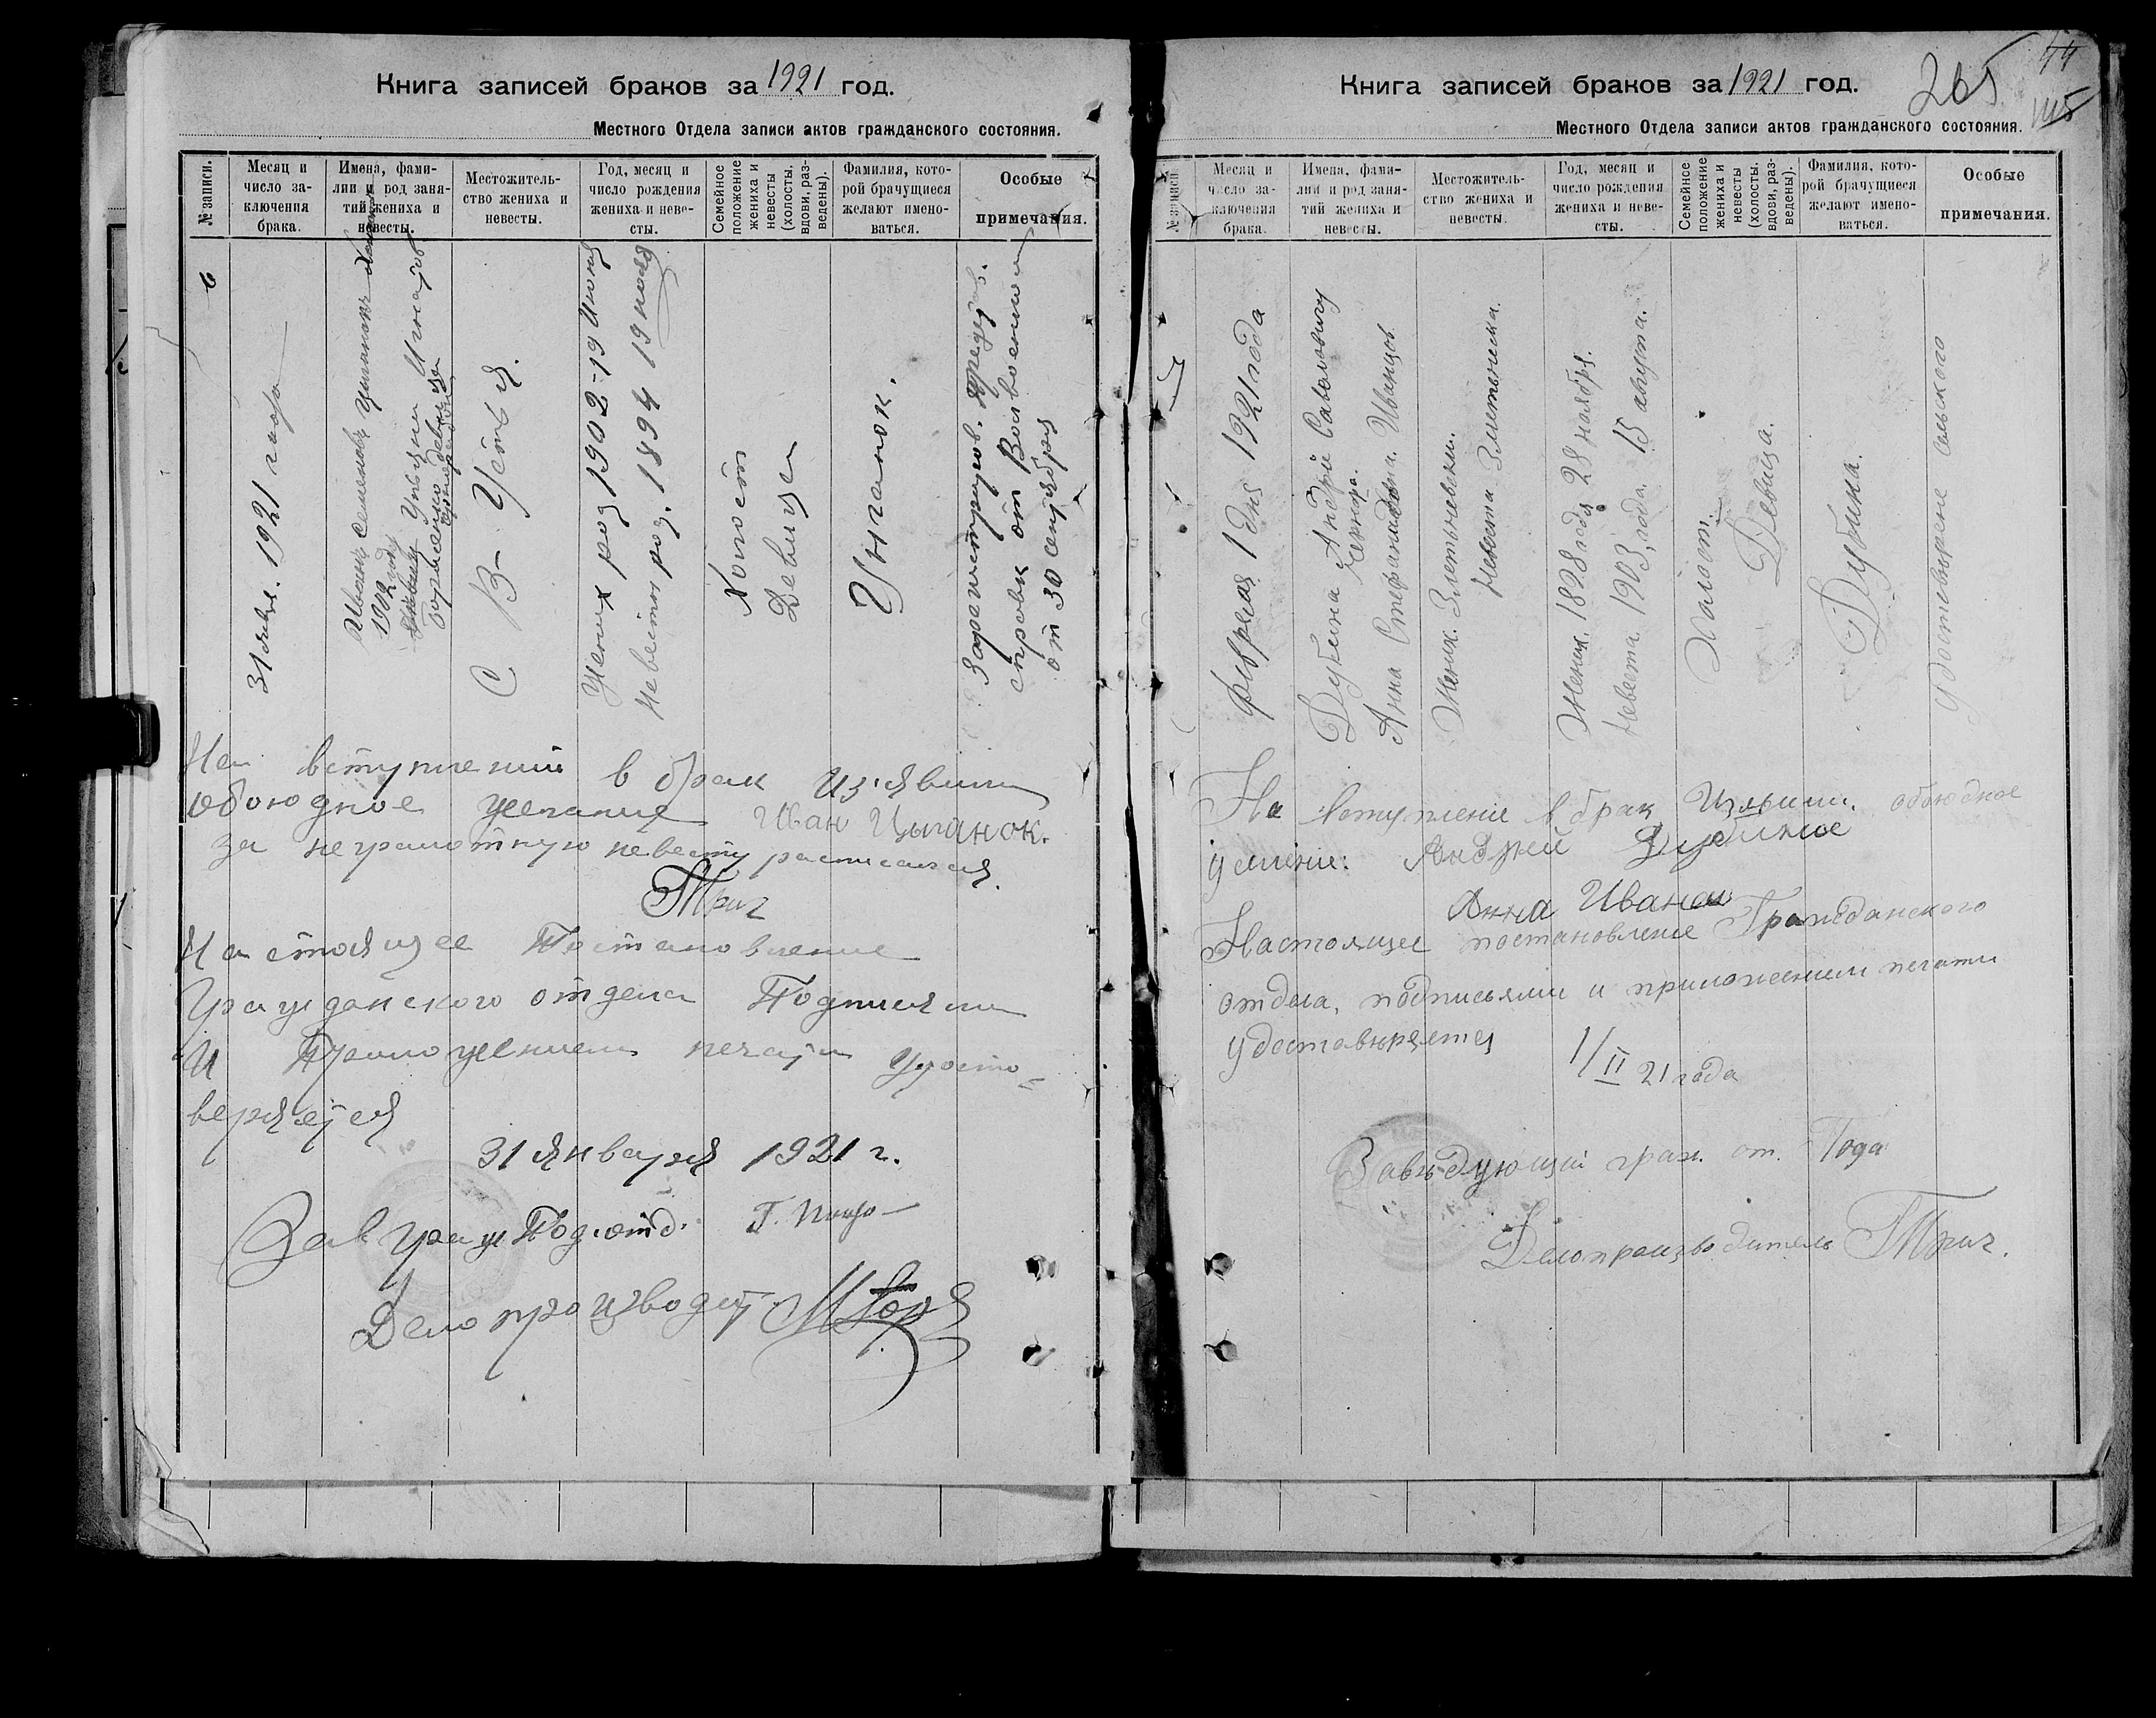 Книга записей браков за 1921 год.
Местного Отдела записи актов гражданского состояния.
№ записи.
Месяц и число заключения брака.
Имена, фамилии и род занятий жениха и невесты.
Местожительство жениха и невесты.
Год, месяц и число рождения жениха и невесты.
Семейное положение жениха и невесты (холосты, вдовы, разведены).
Фамилия, которой брачущиеся желают именоваться.
Особые примечания.
6
31 янв. 1921 года
Иван Семенов Цыганок
1902 году
С В- Устья.
Жених род 1902-19 Июня
Невеста род. 1894 19 июля
Холост
Девица
Цыганок.
Зарегистриров.
справк от
от 30 сентября
На вступлений в брак из'явили
обоюдное желание Иван Цыганок.
за неграмотную невесту расписался.
Триг
Настоящее Постановление
Гражданского отдела Подписями
и Приложением печати Удосто=
веряется
31 января 1921 г.
Зав Граж Под.отд. Г.
Делопроизводит
Книга записей браков за 1921 год.
265
44
Местного Отдела записи актов гражданского состояния.
№ записи
Месяц и число заключения брака.
Имена, фамилии и род занятий жениха и невесты.
Местожительство жениха и невесты.
Год, месяц и число рождения жениха и невесты.
Семейное положение жениха и невесты (холосты, вдовы, разведены).
Фамилия, которой брачущиеся желают именоваться.
Особые примечания.
7
февраля 1 дня 1921 года
Дубина Андрей Савалович
Анна Стефанидова. Иванцов
Жених. Злетьневки.
Невеста Злетьневка.
Жених. 1898 года 28 ноября.
Невеста. 1903, года. 15 августа.
Халост.
Девица.
Дубина.
Удостовърене сельского
На вступлени в брак Изявили. обоюдное
желение: Андрей Дубина
Анна Иванов
Настоящее постановление Гражданского
отдела, подписьями и приложением печати
удоставъряется 1/II 21 года
Завъдующий граж. от. Года
Делопроизводитель Триг.